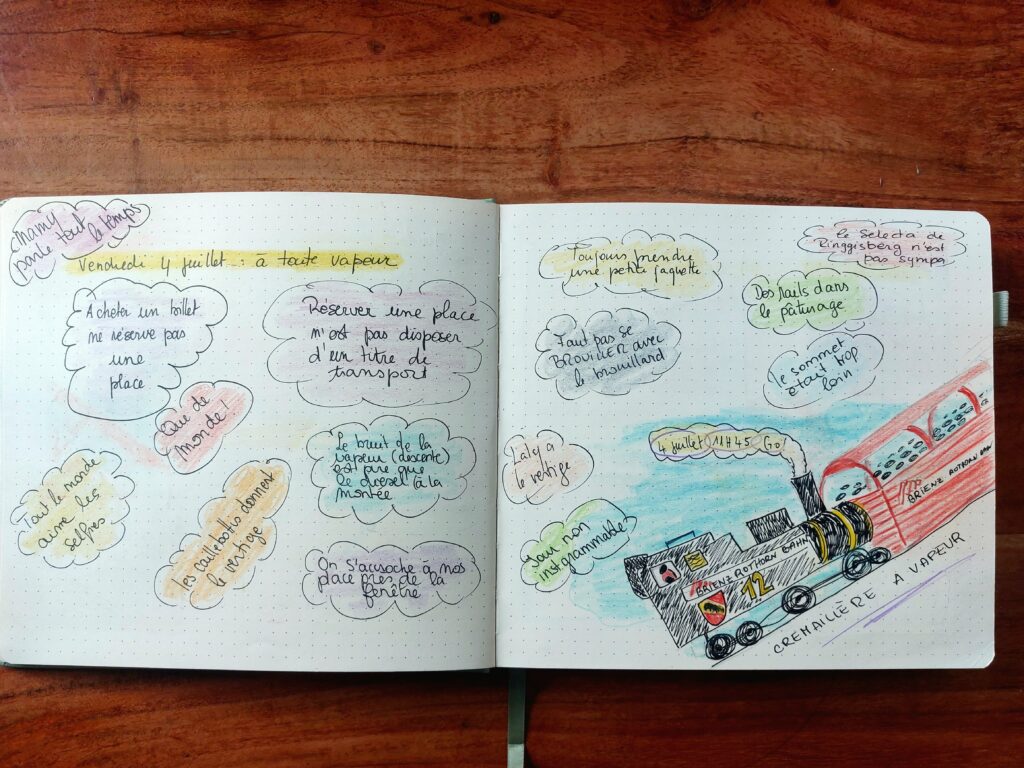 Mamy
parle tout
le temps
Vendredi 4 juillet : à toute vapeur
Acheter un billet
ne réserve pas
une
place
Réserver une place
n'est pas disposer
d'un titre de
transport
Que de
monde !
Le bruit de la
vapeur (descente)
est pire que
le diesel (à la
montée
Tout le monde
aime les
selfies
Les caillebottis donnent
le vertige
On s'accroche à nos
place près de la
fenêtre
Toujours prendre
une petite jaquette
le Selecta de
Ringgisberg n'est
pas sympa
Des rails dans
le pâturage
Faut pas se
BROUILLER avec
le brouillard
le sommet
était trop
loin
Laly a
le vertige
4 juillet 11H45 Go!
Jour non
instagrammable
BRIENZ ROTHORN BAHN
BRIENZ ROTHORN BAHN
12
CREMAILLÈRE A VAPEUR